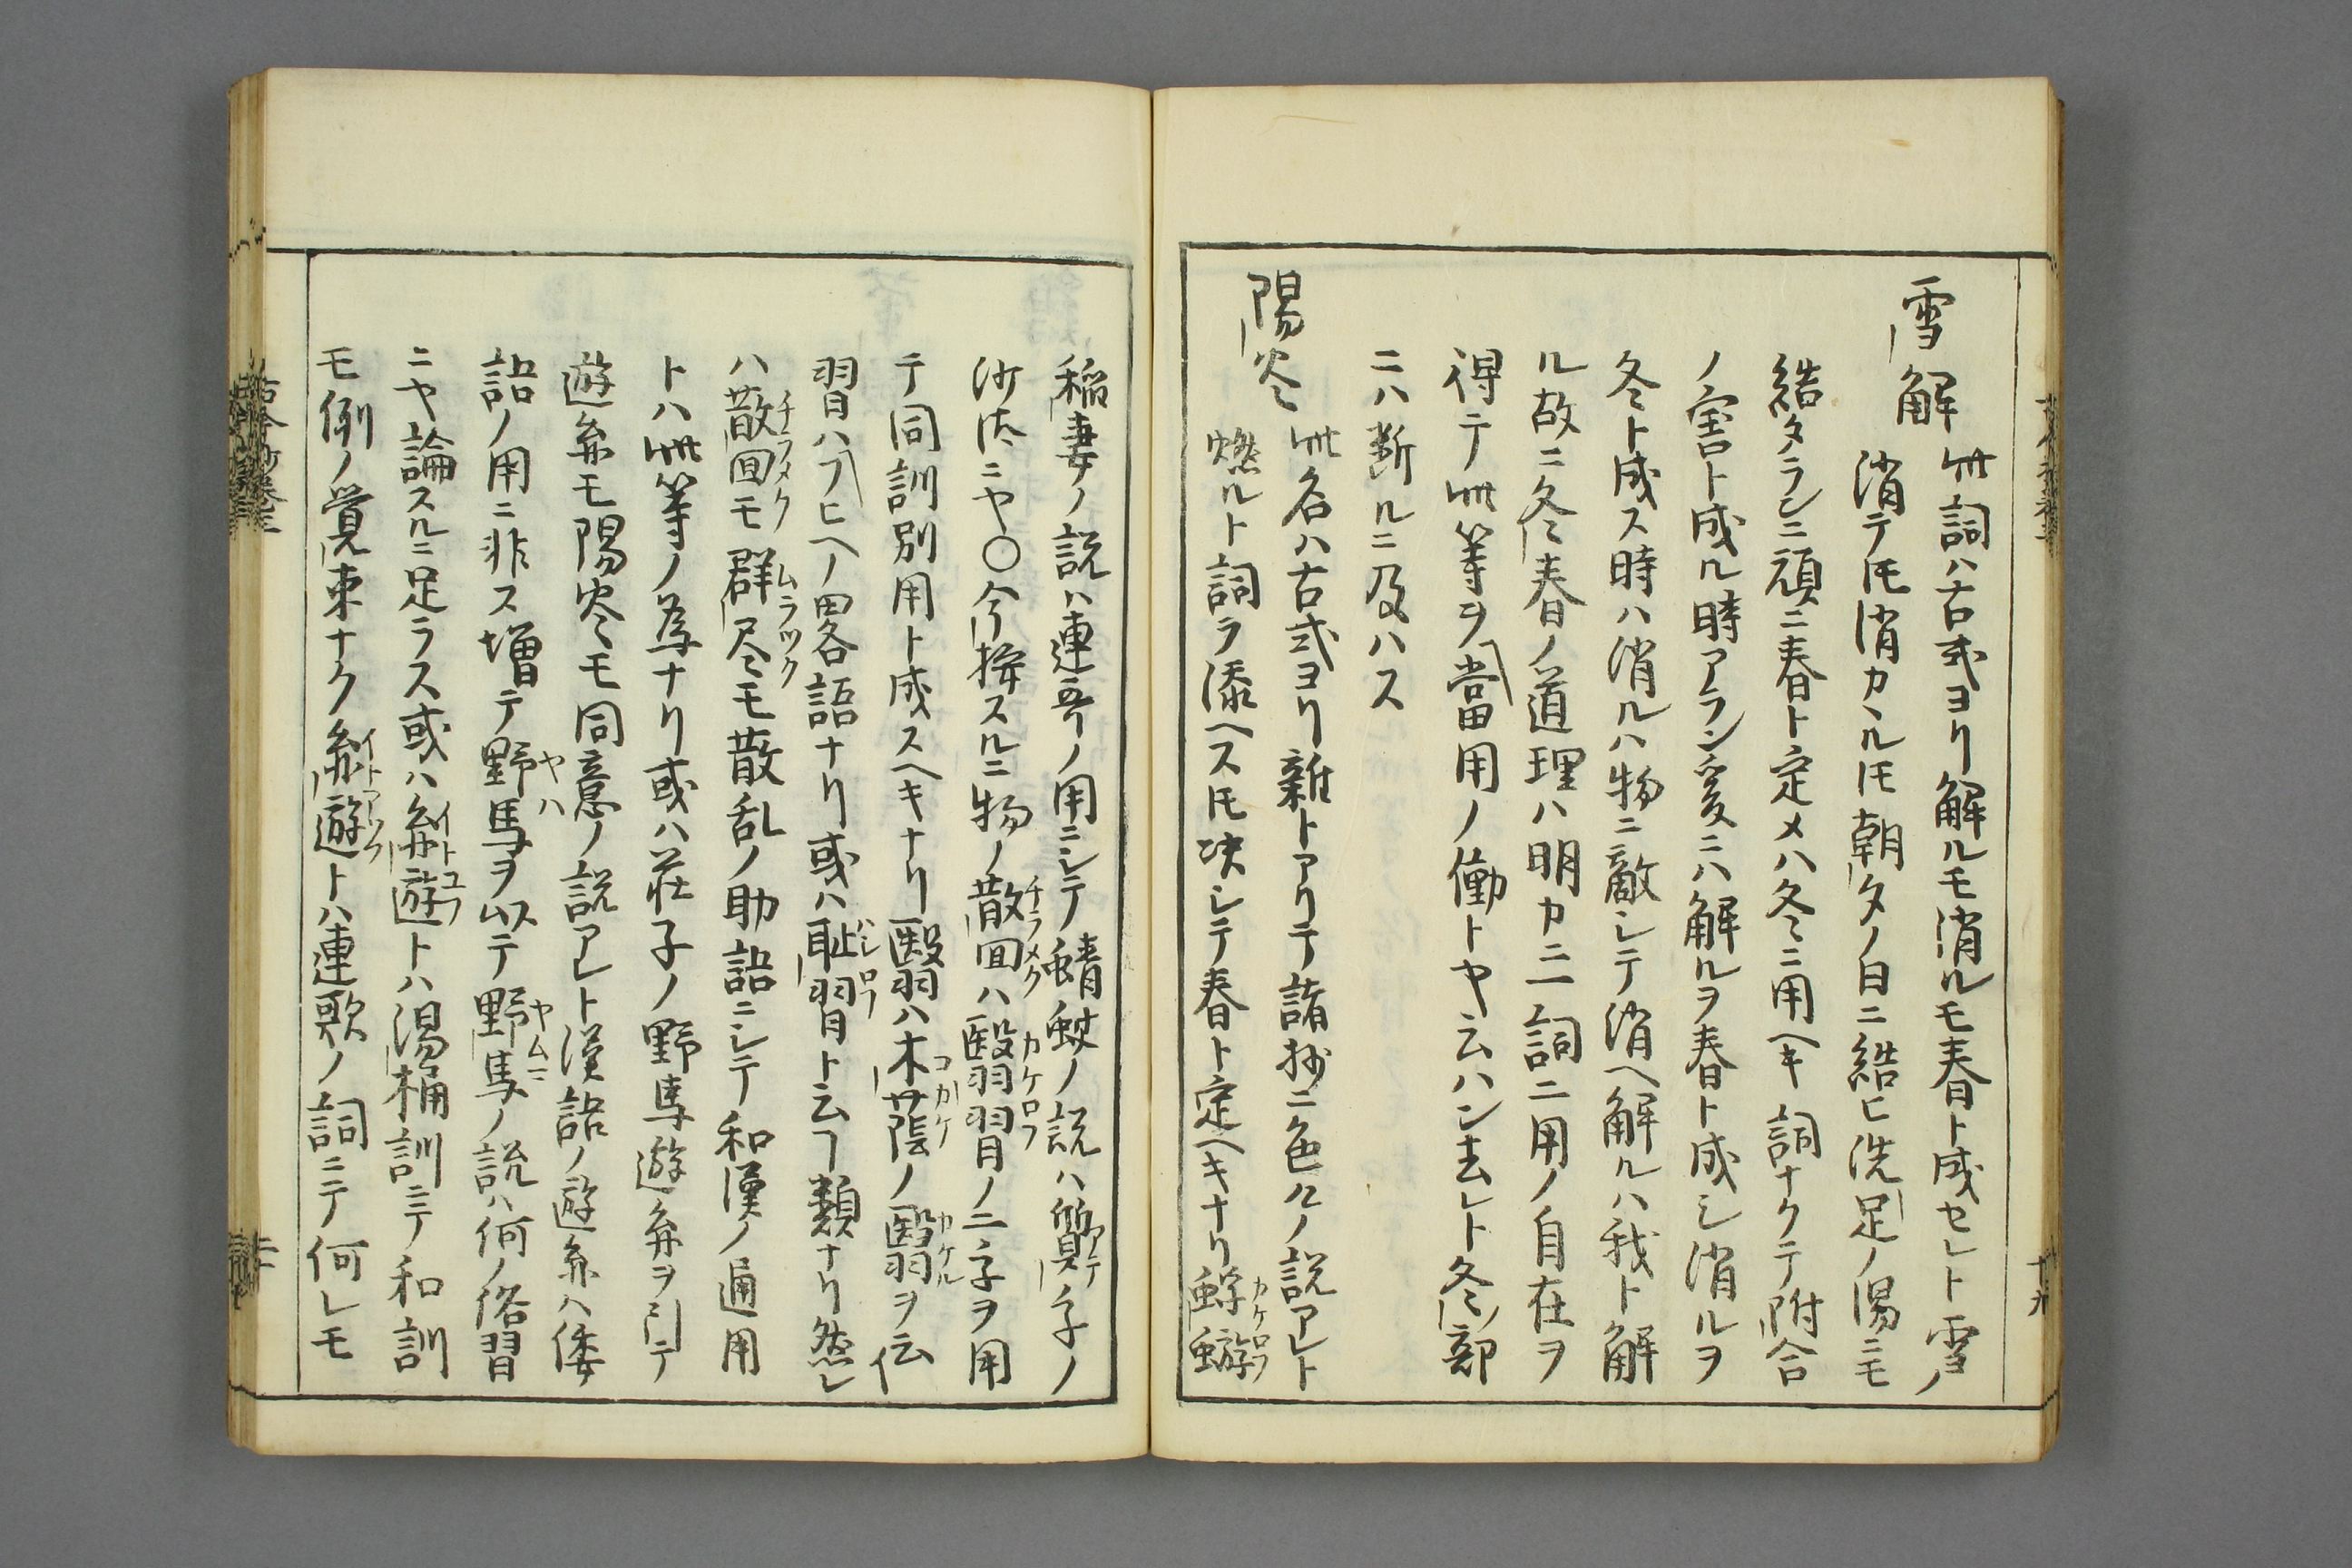 雪解
此詞ハ古式ヨリ解ルモ消ルモ春ト成セレト雪ノ
消テ𪜈消カヽル𪜈朝夕ノ日ニ結ヒ洗足ノ湯ニモ
結タランニ頑ニ春ト定メハ冬ニ用ヘキ詞ナクテ附合
ノ害ト成ル時アラン爰ニハ解ルヲ春ト成シ消ルヲ
冬ト成ス時ハ消ルハ物ニ敵シテ消ヘ解ルハ我ト解
ル故ニ冬春ノ道理ハ明カニ一詞ニ用ノ自在ヲ
得テ此等ヲ當用ノ働トヤ云ハン去レト冬ノ部
ニハ断ルニ及ハス
陽炎
此名ハ古式ヨリ雜トアリテ諸抄ニ色々ノ説アレト
燃ルト詞ヲ添ヘス𪜈决シテ春ト定ヘキナリ蜉蝣カケロフ
稲妻ノ説ハ連哥ノ用ニシテ蜻蛉ノ説ハ質アテ字ノ
沙汰ニヤ○今按スルニ物ノ散回チラメクハ翳習カケロフノ二字ヲ用
テ同訓別用ト成スヘキナリ翳ハ木蔭コカケノ翳カケルヲ云イ
習ハフヒヘノ畧語ナリ或ハ耻習ハシロフト云フ類ナリ然レ
ハ散回チラメクモ群尽ムラツクモ散乱ノ助語ニシテ和漢ノ通用
トハ此等ノ為ナリ或ハ莊子ノ野馬遊糸ヲ引テ
遊糸モ陽炎モ同意ノ説アレト漢語ノ遊糸ハ倭
語ノ用ニ非ス増テ野馬ヤハヲ以テ野馬ヤムマノ説ハ何ノ俗習
ニヤ論スルニ足ラス或ハ糸遊イトユフトハ湯桶訓ニテ和訓
モ例ノ覚束ナク糸遊イトアソフトハ連歌ノ詞ニテ何レモ